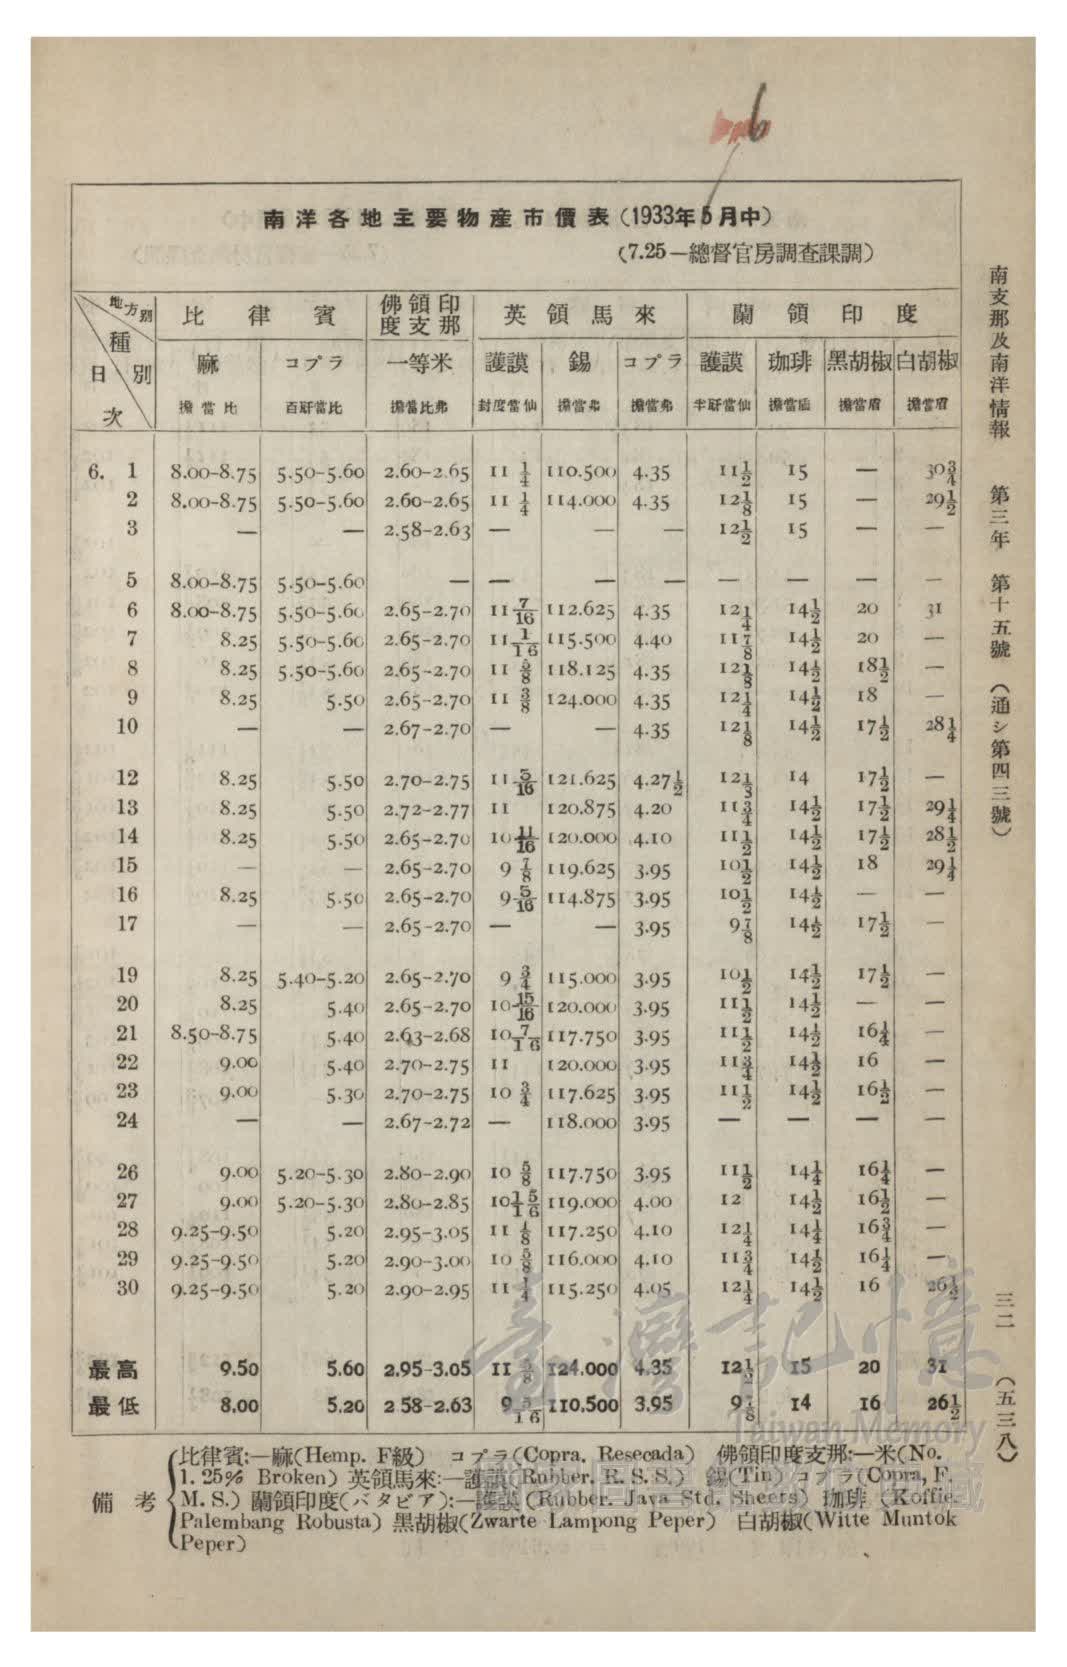 6
南洋各地主要物産市價表(1933年5月中)
(7.25—總督官房調查課調)
地方別 種別 日次
比律賓 佛領印度支那 英領馬來 蘭領印度
麻 コプラ 一等米 護謨 錫 コプラ 護謨 珈琲 黑胡椒 白胡椒
擔當比 百瓩當比 擔當比弗 封度當仙 擔當弗 擔當弗 半瓩當仙 擔當盾 擔當盾 擔當盾
6. 1 8.00-8.75 5.50-5.60 2.60-2.65 11 1/4 110.500 4.35 11 1/2 15 — 30 3/4
2 8.00-8.75 5.50-5.60 2.60-2.65 11 1/4 114.000 4.35 12 1/8 15 — 29 1/2
3 — — 2.58-2.63 — — — 12 1/2 15 — —
5 8.00-8.75 5.50-5.60 — — — — — — — —
6 8.00-8.75 5.50-5.60 2.65-2.70 11 7/16 112.625 4.35 12 1/4 14 1/2 20 31
7 8.25 5.50-5.60 2.65-2.70 11 1/16 115.500 4.40 11 7/8 14 1/2 20 —
8 8.25 5.50-5.60 2.65-2.70 11 5/8 118.125 4.35 12 1/8 14 1/2 18 1/2 —
9 8.25 5.50 2.65-2.70 11 3/8 124.000 4.35 12 1/4 14 1/2 18 —
10 — — 2.67-2.70 — — 4.35 12 1/8 14 1/2 17 1/2 28 1/4
12 8.25 5.50 2.70-2.75 11 5/16 121.625 4.27 1/2 12 1/3 14 17 1/2 —
13 8.25 5.50 2.72-2.77 11 120.875 4.20 11 3/4 14 1/2 17 1/2 29 1/4
14 8.25 5.50 2.65-2.70 10 11/16 120.000 4.10 11 1/2 14 1/2 17 1/2 28 1/2
15 — — 2.65-2.70 9 7/8 119.625 3.95 10 1/2 14 1/2 18 29 1/4
16 8.25 5.50 2.65-2.70 9 5/16 114.875 3.95 10 1/2 14 1/2 — —
17 — — 2.65-2.70 — — 3.95 9 7/8 14 1/2 17 1/2 —
19 8.25 5.40-5.20 2.65-2.70 9 3/4 115.000 3.95 10 1/2 14 1/2 17 1/2 —
20 8.25 5.40 2.65-2.70 10 15/16 120.000 3.95 11 1/2 14 1/2 — —
21 8.50-8.75 5.40 2.63-2.68 10 7/16 117.750 3.95 11 1/2 14 1/2 16 1/4 —
22 9.00 5.40 2.70-2.75 11 120.000 3.95 11 3/4 14 1/2 16 —
23 9.00 5.30 2.70-2.75 10 3/4 117.625 3.95 11 1/2 14 1/2 16 1/2 —
24 — — 2.67-2.72 — 118.000 3.95 — — — —
26 9.00 5.20-5.30 2.80-2.90 10 5/8 117.750 3.95 11 1/2 14 1/4 16 1/4 —
27 9.00 5.20-5.30 2.80-2.85 10 15/16 119.000 4.00 12 14 1/2 16 1/2 —
28 9.25-9.50 5.20 2.95-3.05 11 1/8 117.250 4.10 12 1/4 14 1/4 16 3/4 —
29 9.25-9.50 5.20 2.90-3.00 10 5/8 116.000 4.10 11 3/4 14 1/2 16 1/4 —
30 9.25-9.50 5.20 2.90-2.95 11 1/4 115.250 4.05 12 1/4 14 1/2 16 26 1/2
最高 9.50 5.60 2.95-3.05 11 5/8 124.000 4.35 12 1/2 15 20 31
最低 8.00 5.20 2 58-2.63 9 5/16 110.500 3.95 9 7/8 14 16 26 1/2
備考
比律賓:—麻(Hemp. F級) コプラ(Copra, Resecada) 佛領印度支那:—米(No.
1. 25% Broken) 英領馬來:—護謨(Rubber. R. S. S.) 錫(Tin) コプラ(Copra, F.
M. S.) 蘭領印度(バタビア):—護謨(Rubber. Java Std. Sheets) 珈琲 (Koffie.
Palembang Robusta) 黑胡椒(Zwarte Lampong Peper) 白胡椒(Witte Muntok
Peper)
南支那及南洋情報 第三年 第十五號 (通シ第四三號) 三二 (五三八)
臺灣記憶
Taiwan Memory